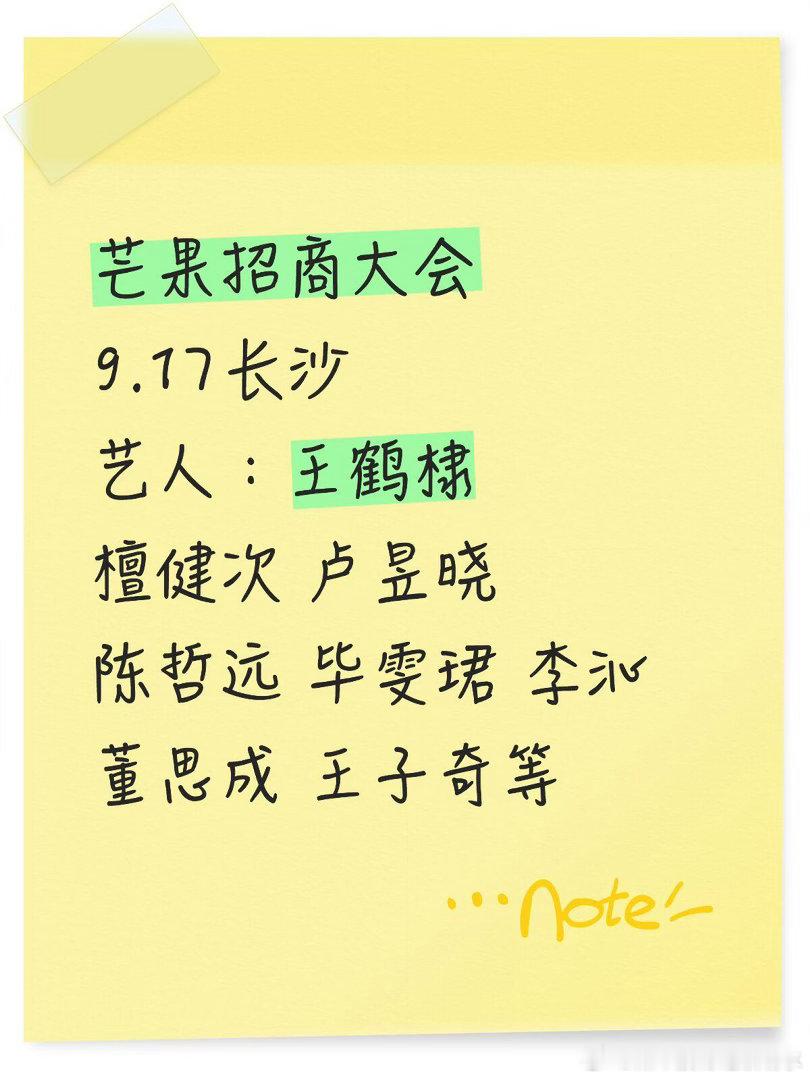 芒果招商大会
9.17长沙
艺人：王鹤棣
檀健次 卢昱晓
陈哲远 毕雯珺 李沁
董思成 王子奇等
...note!